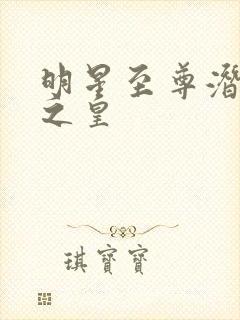 明星至尊潛
之皇
琪寶寶